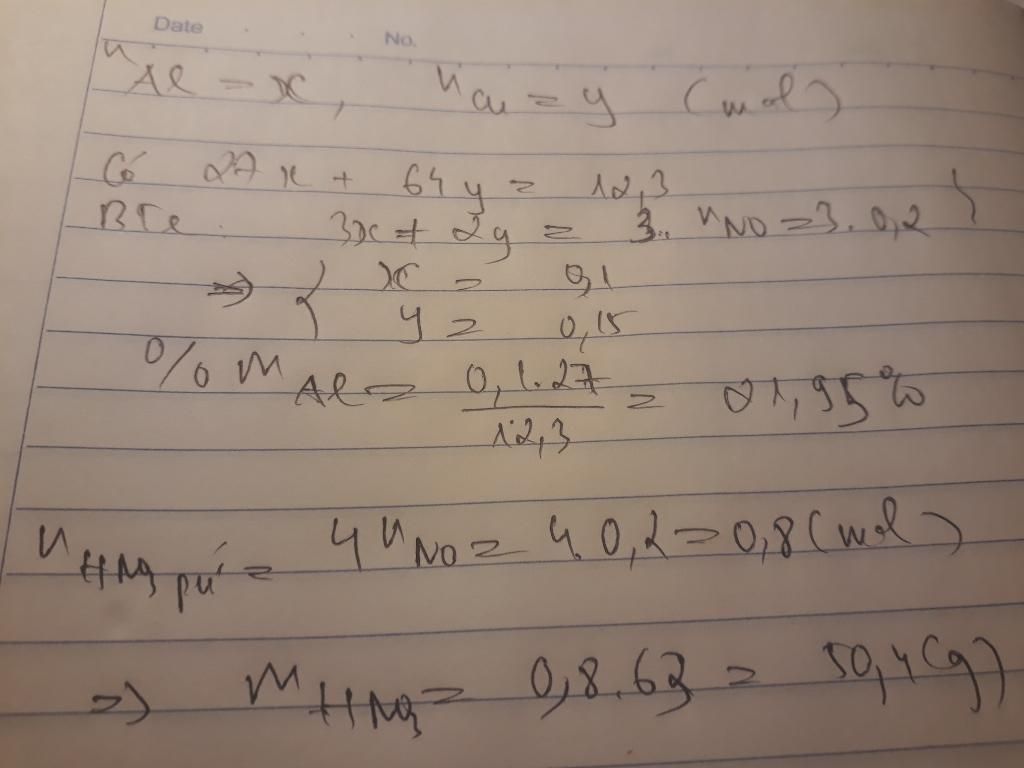 Date No.
n Al = x, n Cu = y (mol)
Có 27x + 64y = 12,3
BTe. 3x + 2y = 3. nNO = 3. 0,2 }
=> { x = 0,1
y = 0,15
% m Al = 0,1.27 / 12,3 = 21,95%
n HNO3 pứ = 4 nNO = 4. 0,2 = 0,8 (mol)
=> m HNO3 = 0,8. 63 = 50,4 (g)